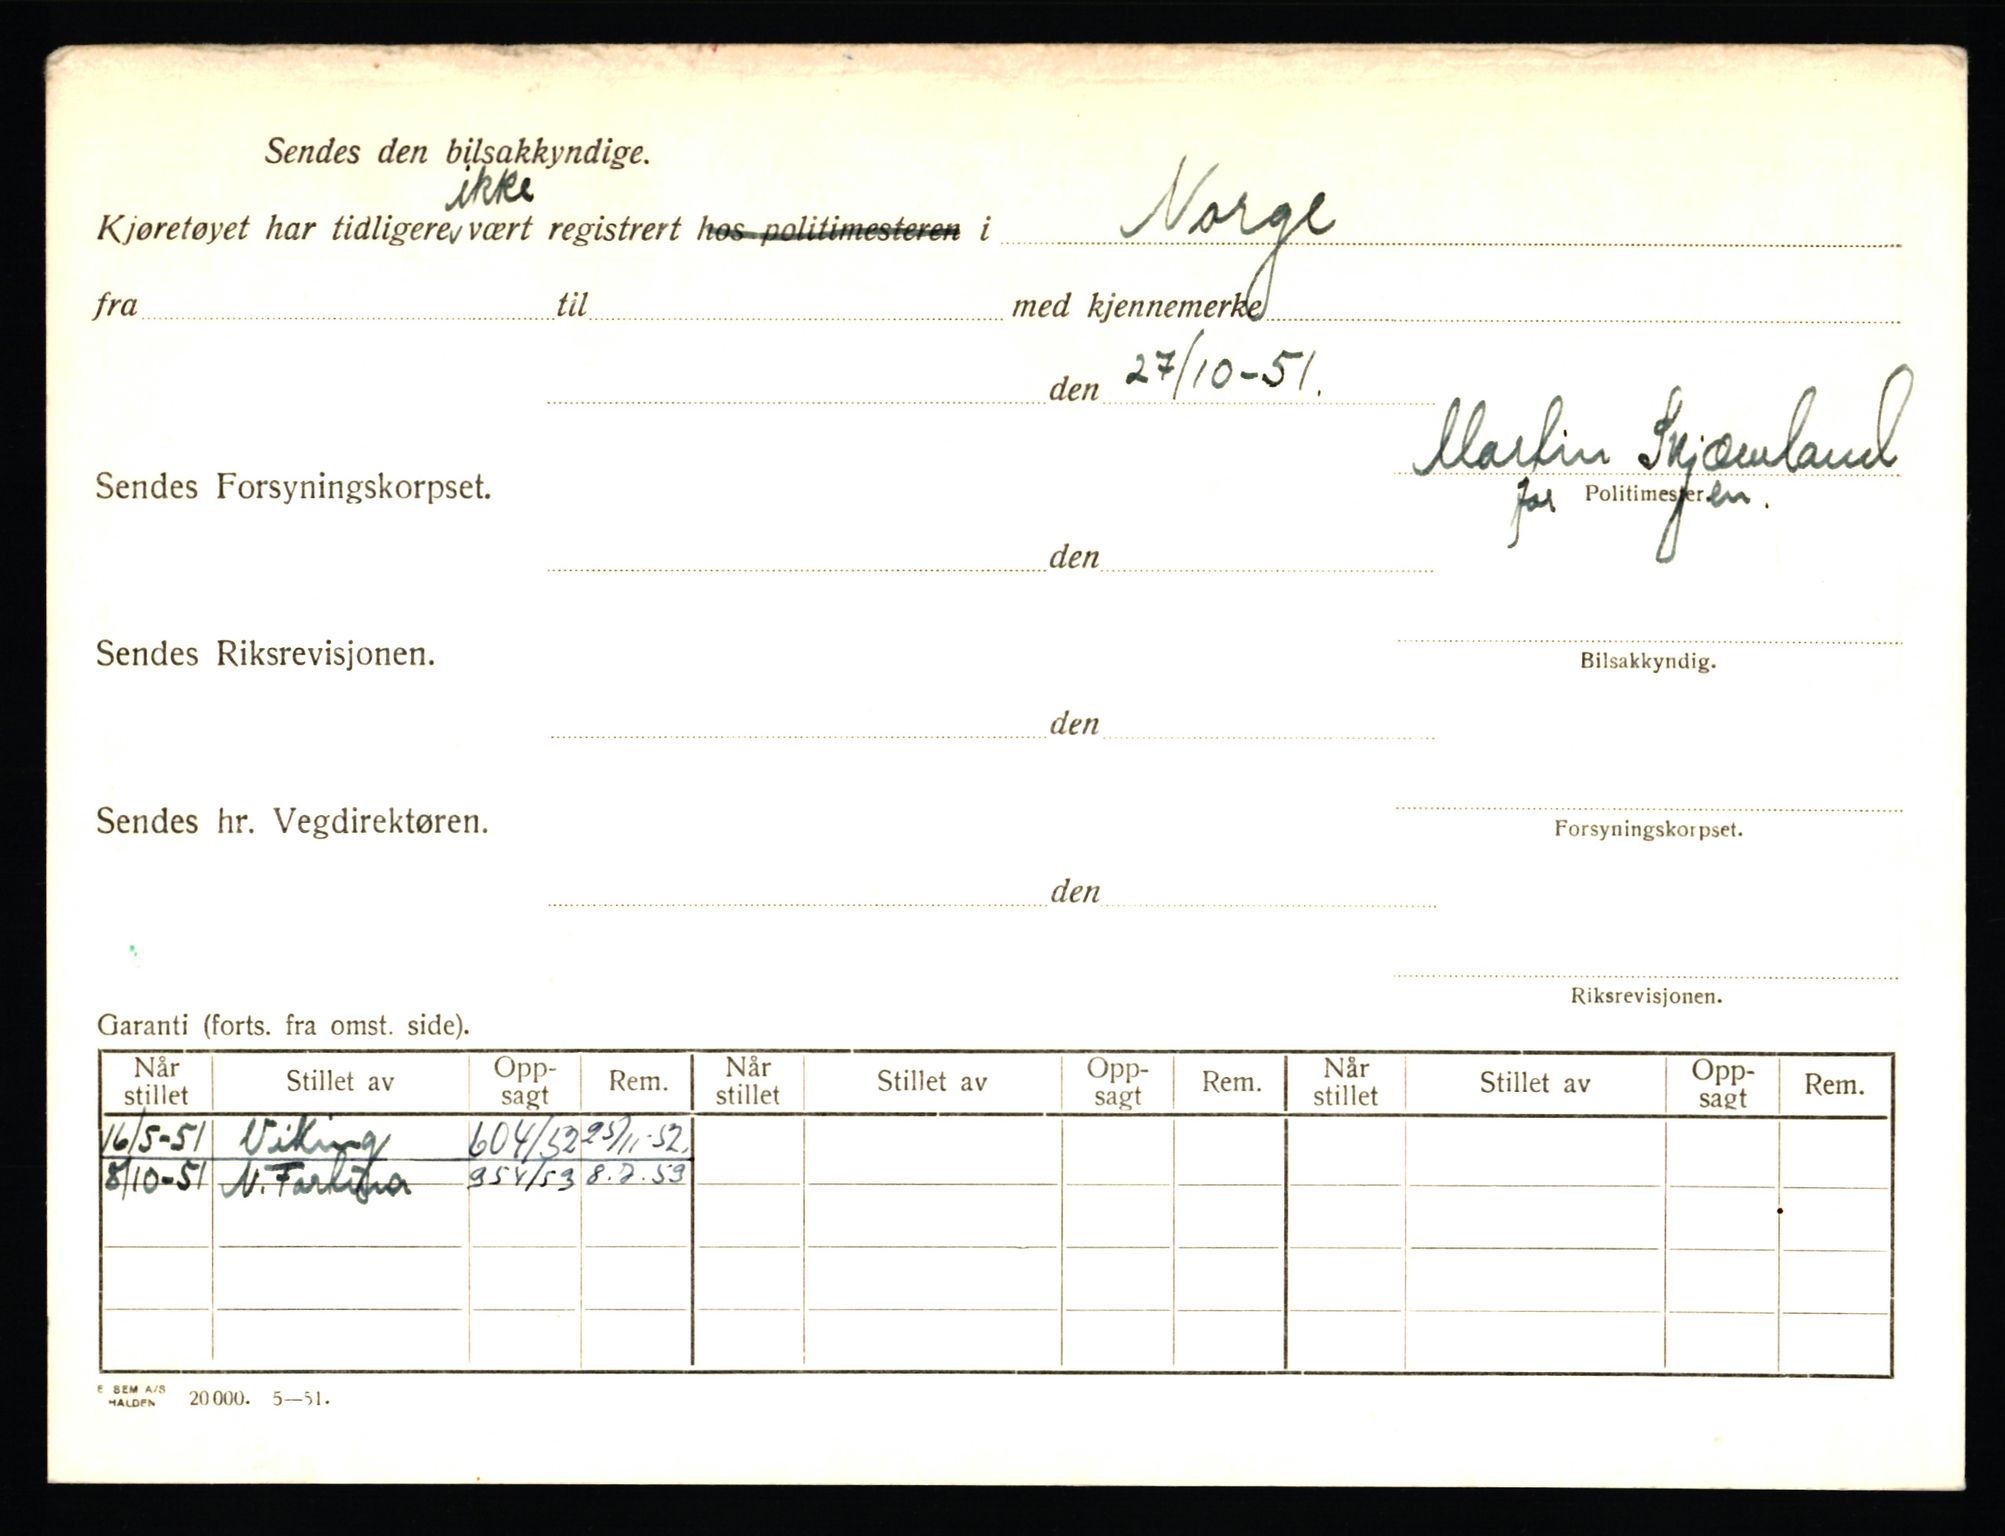 Sendes den bilsakkyndige.
ikke
Kjøretøyet har tidligere vært registrert hos politimesteren i Norge
fra til med kjennemerke
den 27/10-51.
Martin
Sendes Forsyningskorpset.
for Politimesteren.
den
Sendes Riksrevisjonen.
Bilsakkyndig.
den
Sendes hr. Vegdirektøren.
Forsyningskorpset.
den
Riksrevisjonen.
Garanti (forts. fra omst. side).
Når stillet Stillet av Opp-sagt Rem. Når stillet Stillet av Opp-sagt Rem. Når stillet Stillet av Opp-sagt Rem.
16/5-51 Viking 604/52 25/11-52.
8/10-51 N.
E SEM A/S
HALDEN 20000. 5—51.